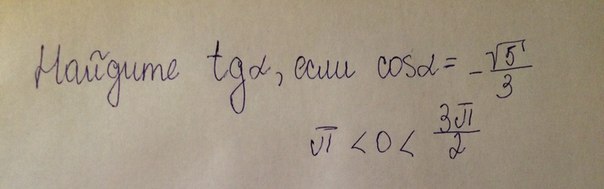 Найдите tgα, если cosα = -√5/3
π < 0 < 3π/2